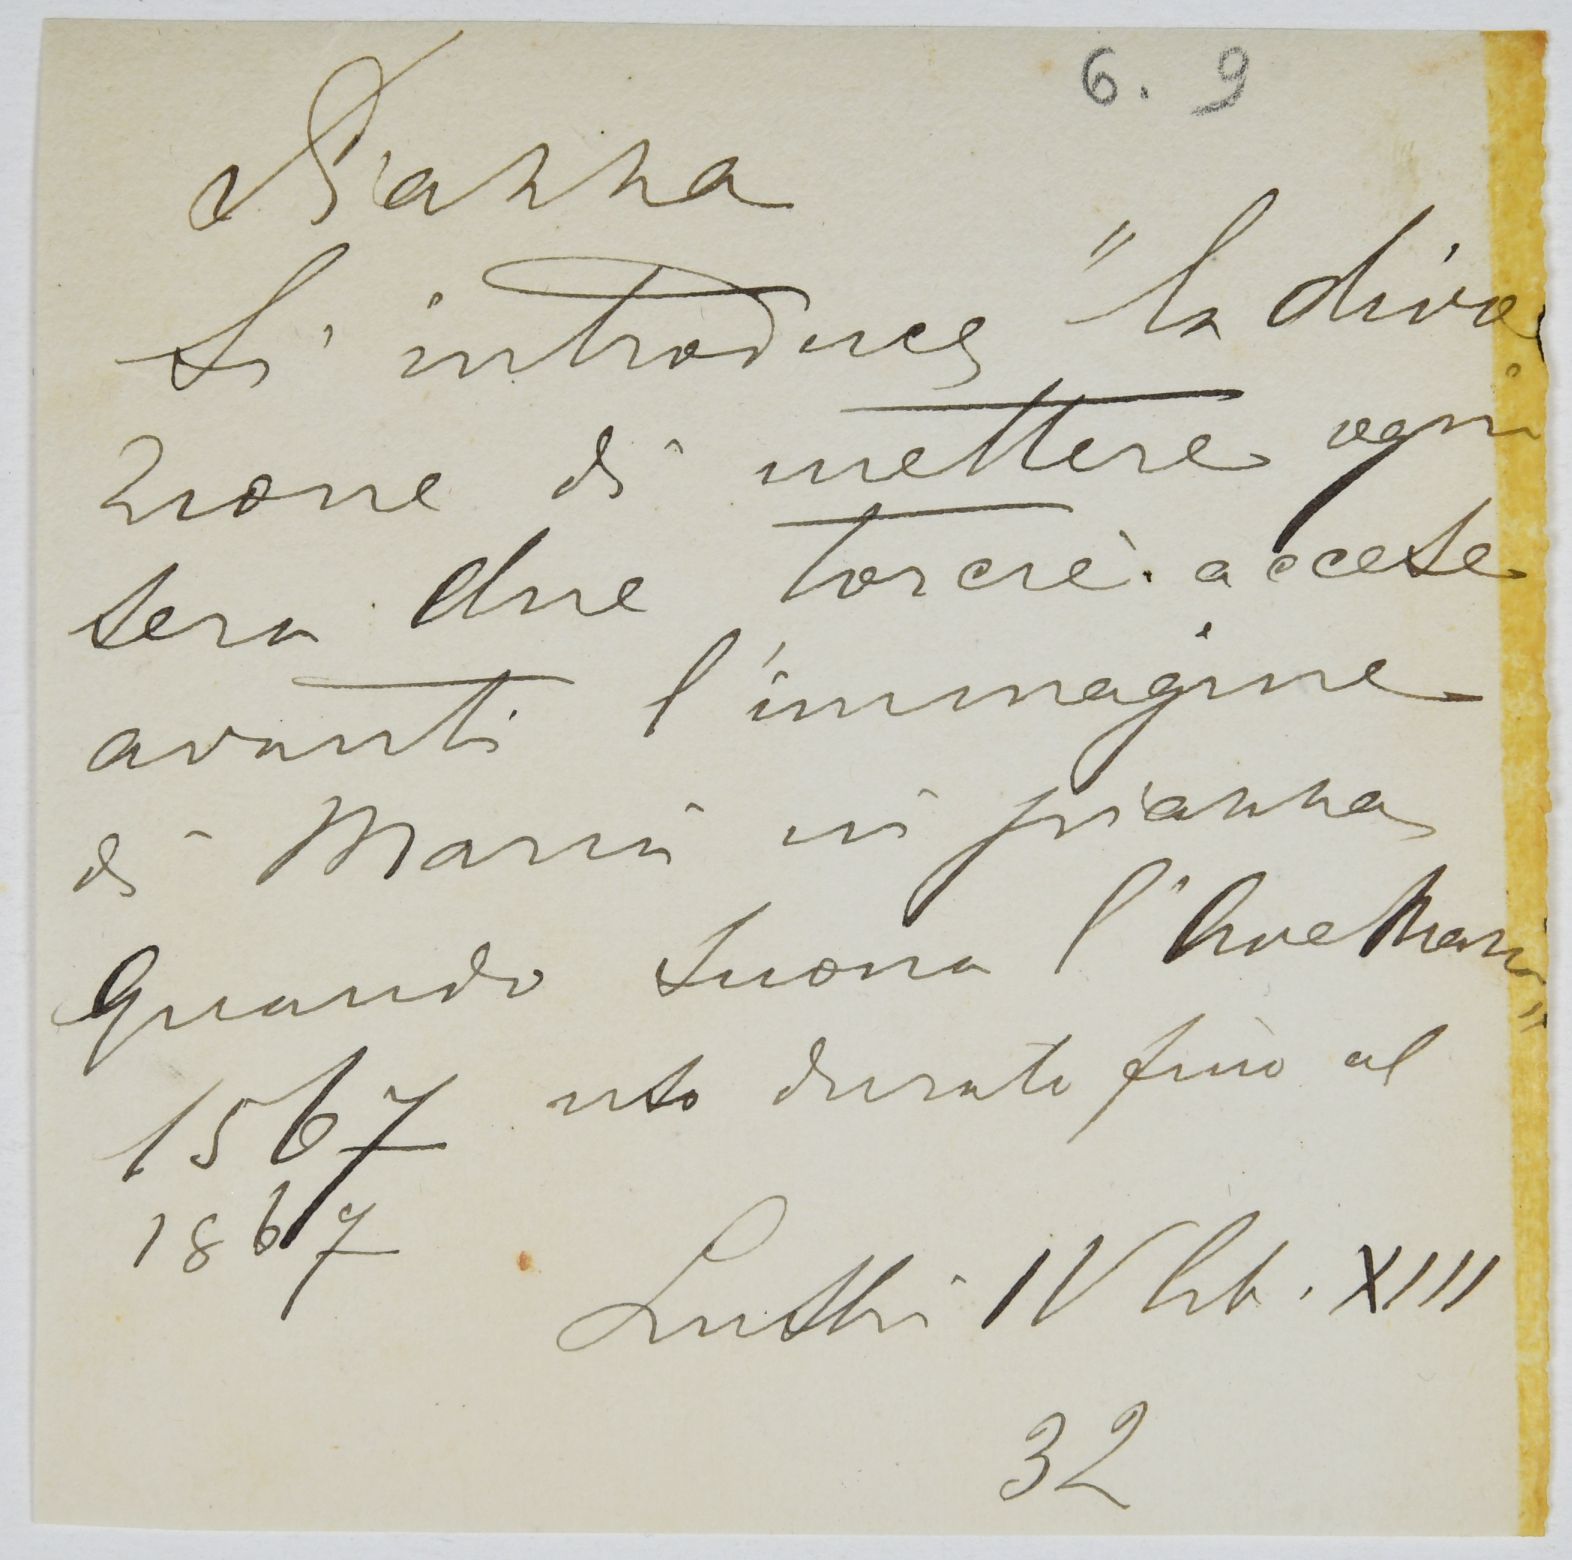 6. 9
Piazza
Si introduce "la divo
zione di mettere ogni
sera due torcie accese
avanti l'immagine
di Maria in piazza
quando suona l'Ave Maria"
1567 uso durato fino al
1867
IV Lib. XIII
32